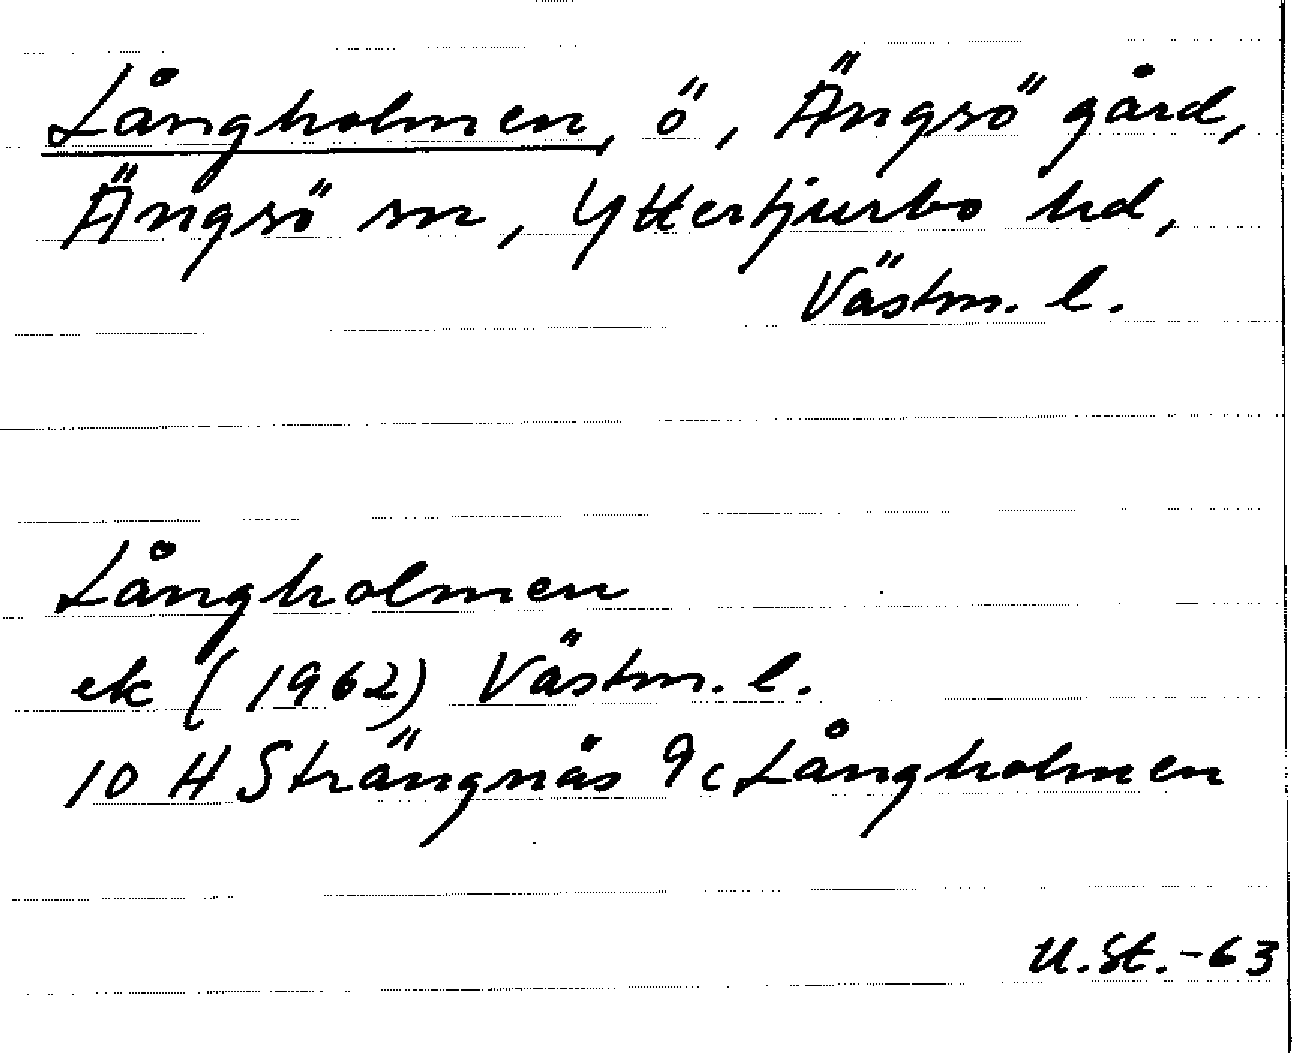 Långholmen, ö, Ängsö gård,
Ängsö sn, Yttertjurbo hd,
Västm. l.
Långholmen
ek (1962) Västm. l.
10 H Strängnäs 9c Långholmen
U.St.-63